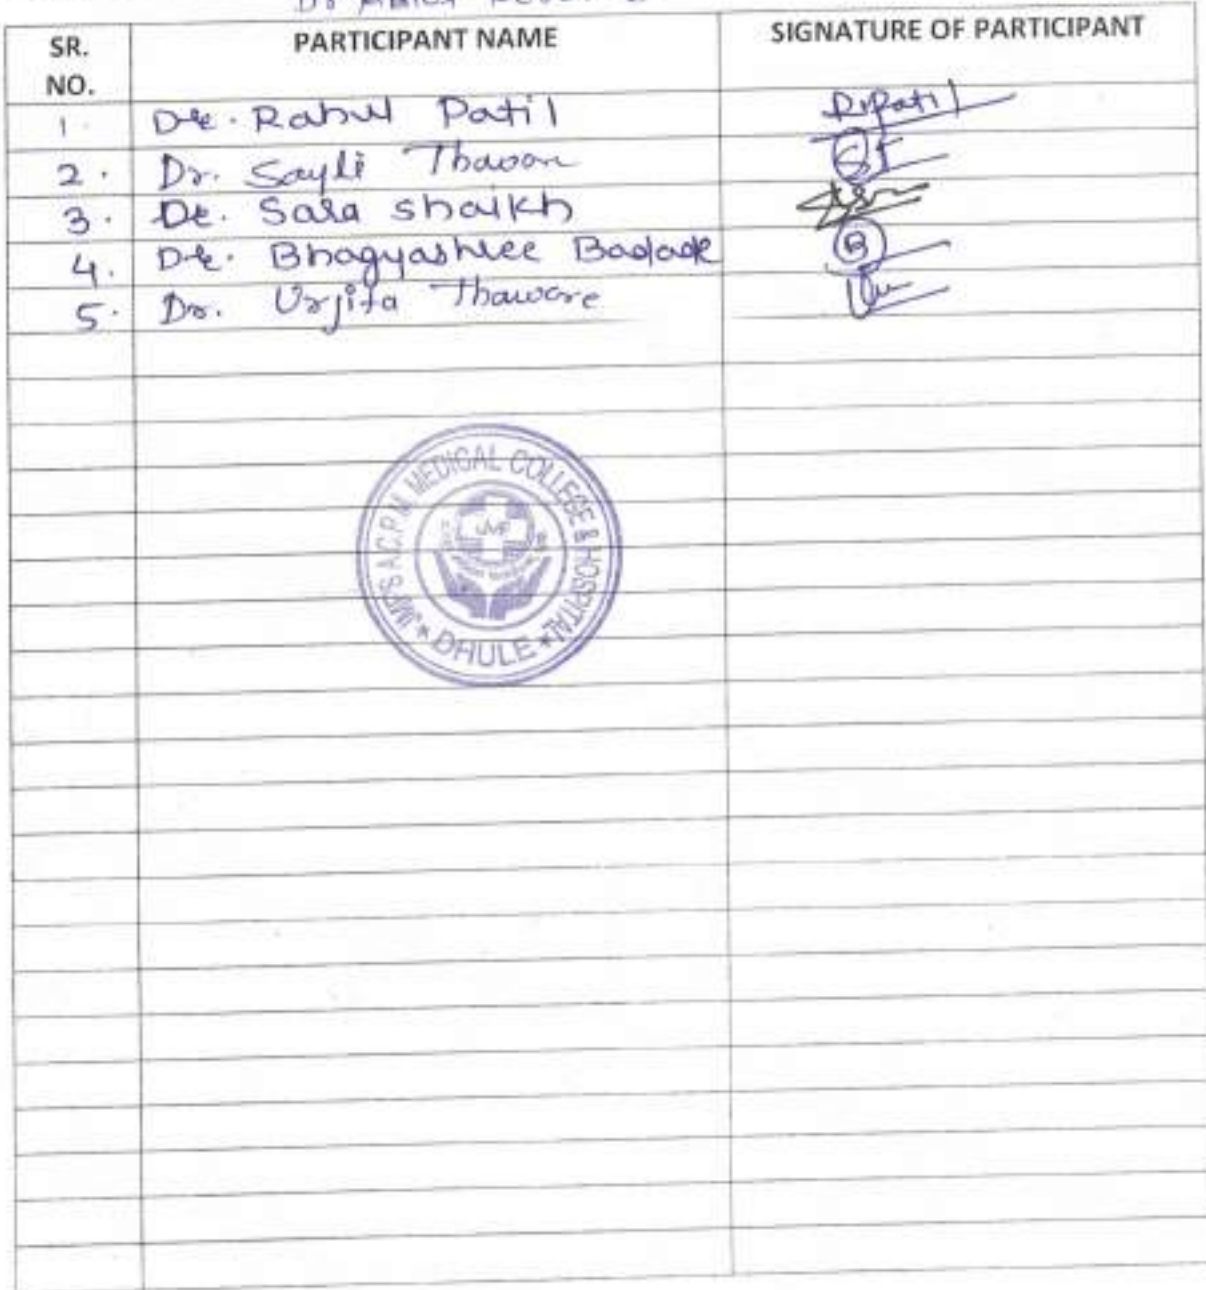 SR. NO. PARTICIPANT NAME SIGNATURE OF PARTICIPANT
1. Dr. Rahul Patil R.Patil
2. Dr. Sayli Thavare
3. Dr. Sara shaikh
4. Dr. Bhagyashree Badade B
5. Dr. Urjita Thaware
JMF'S A.C.P.M. MEDICAL COLLEGE & HOSPITAL
* DHULE *
JMF